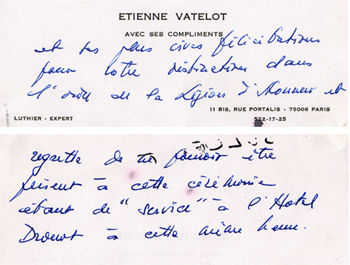 ETIENNE VATELOT
AVEC SES COMPLIMENTS
et ses plus vives félicitations
pour votre distinction dans
l'ordre de la Légion d'Honneur et
11 BIS, RUE PORTALIS - 75008 PARIS
LUTHIER - EXPERT
522-17-25
regrette de ne pouvoir être
présent à cette cérémonie
étant de "service" à l'Hotel
Drouot à cette même heure.